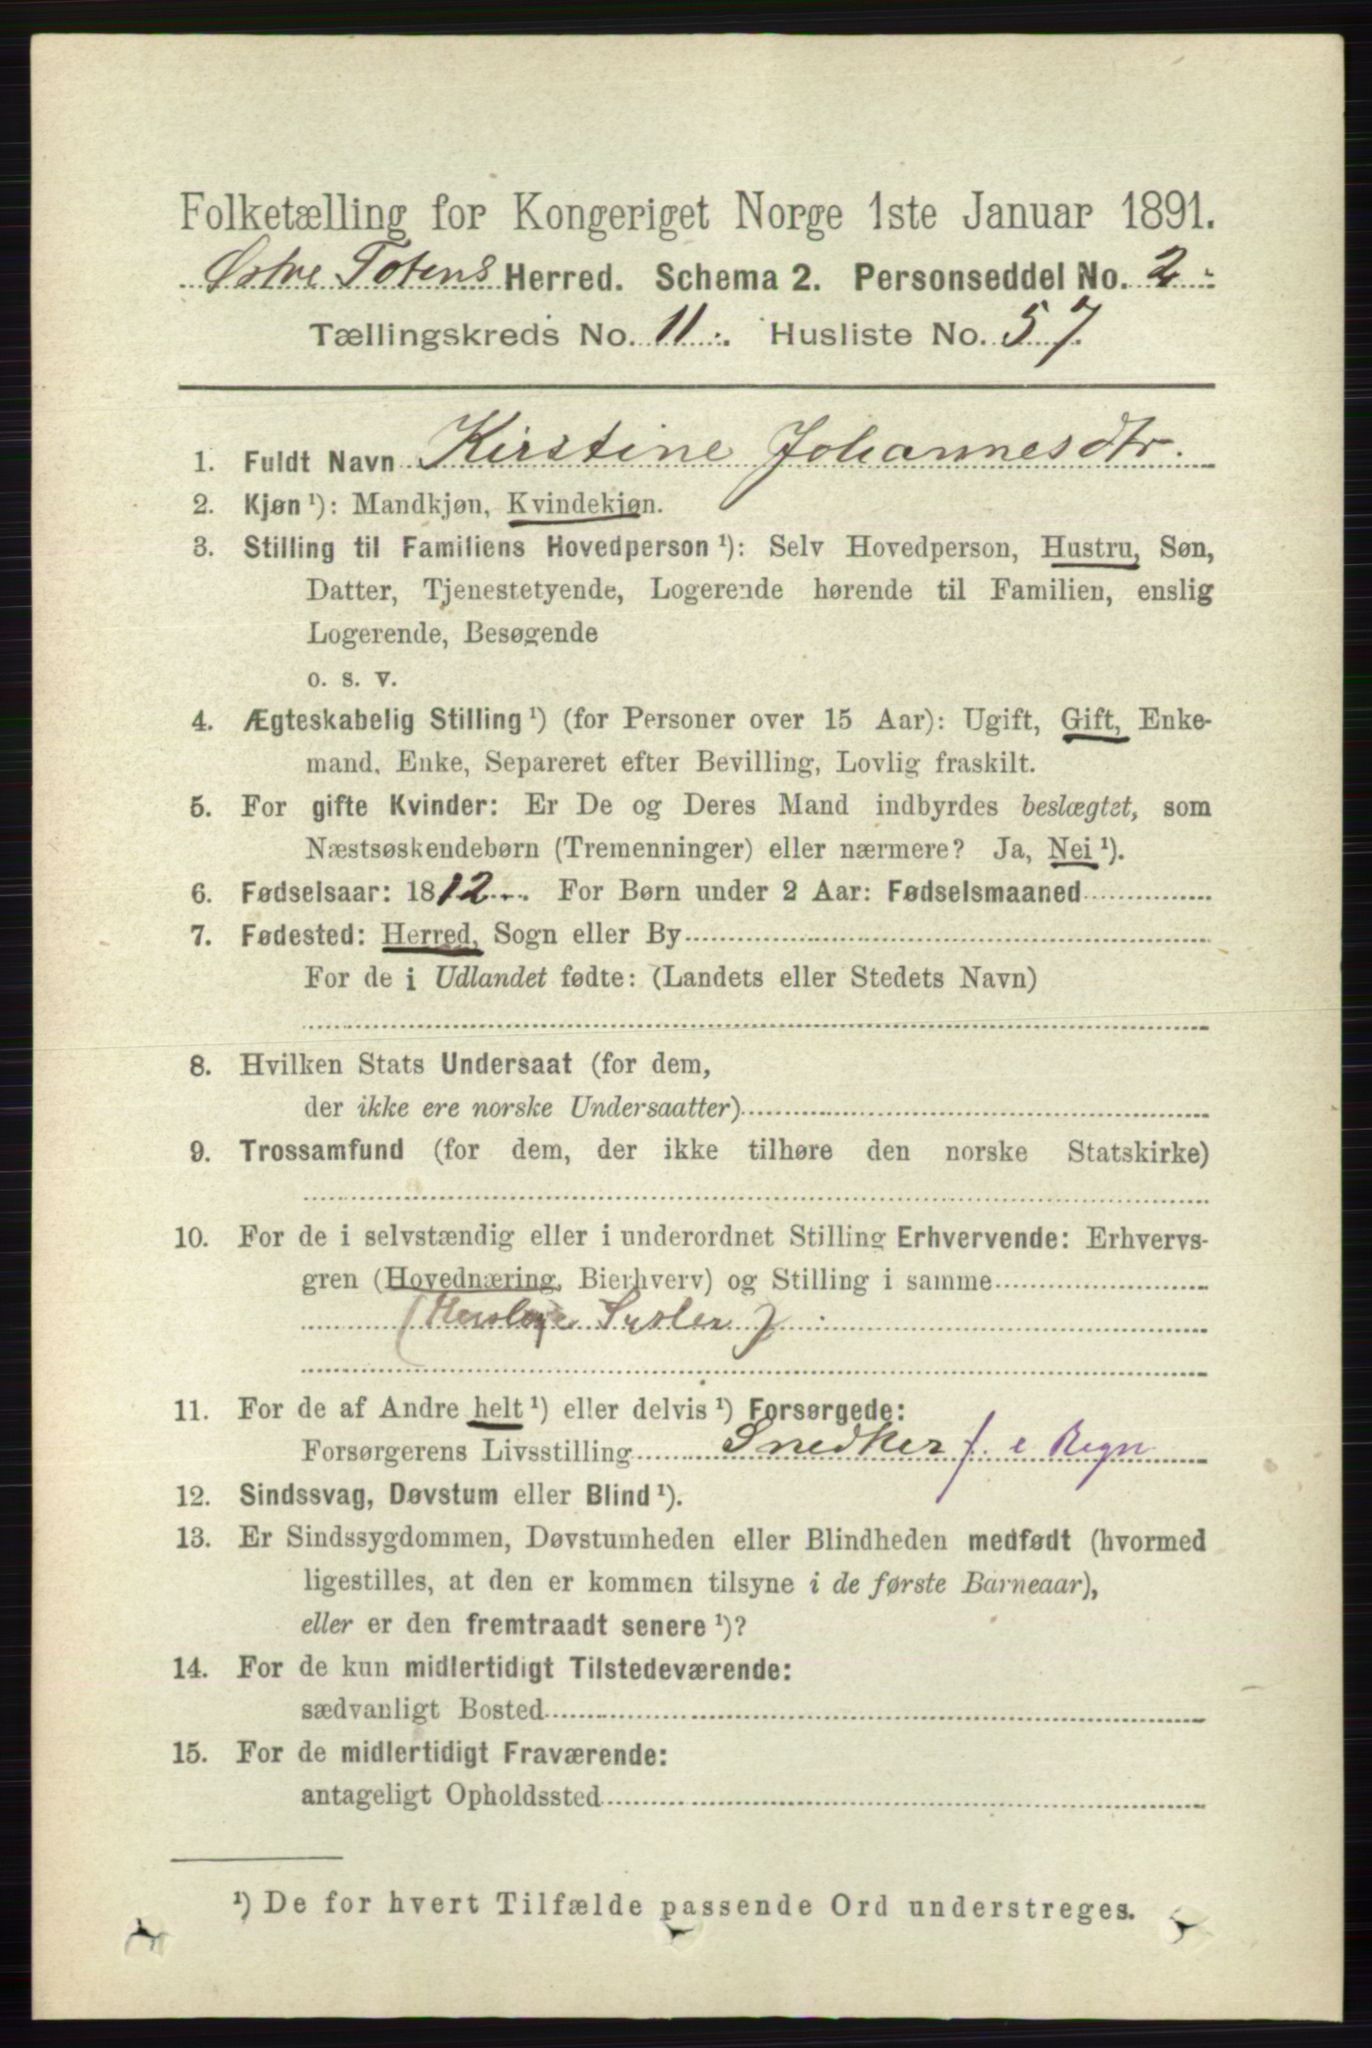 Folketælling for Kongeriget Norge 1ste Januar 1891.
Østre Totens Herred. Schema 2. Personseddel No. 2
Tællingskreds No. 11 Husliste No. 57
1. Fuldt Navn Kirstine Johannesdtr.
2. Kjøn ¹): Mandkjøn, Kvindekjøn.
3. Stilling til Familiens Hovedperson ¹): Selv Hovedperson, Hustru, Søn,
Datter, Tjenestetyende, Logerende hørende til Familien, enslig
Logerende, Besøgende
o. s. v.
4. Ægteskabelig Stilling ¹) (for Personer over 15 Aar): Ugift, Gift, Enke-
mand, Enke, Separeret efter Bevilling, Lovlig fraskilt.
5. For gifte Kvinder: Er De og Deres Mand indbyrdes beslægtet, som
Næstsøskendebørn (Tremenninger) eller nærmere? Ja, Nei ¹).
6. Fødselsaar: 1812. For Børn under 2 Aar: Fødselsmaaned
7. Fødested: Herred, Sogn eller By
For de i Udlandet fødte: (Landets eller Stedets Navn)
8. Hvilken Stats Undersaat (for dem,
der ikke ere norske Undersaatter)
9. Trossamfund (for dem, der ikke tilhøre den norske Statskirke)
10. For de i selvstændig eller i underordnet Stilling Erhvervende: Erhvervs-
gren (Hovednæring, Bierhverv) og Stilling i samme
(Huslige Sysler)
11. For de af Andre helt ¹) eller delvis ¹) Forsørgede:
Forsørgerens Livsstilling Snedker f. e Regn
12. Sindssvag, Døvstum eller Blind ¹).
13. Er Sindssygdommen, Døvstumheden eller Blindheden medfødt (hvormed
ligestilles, at den er kommen tilsyne i de første Barneaar),
eller er den fremtraadt senere ¹)?
14. For de kun midlertidigt Tilstedeværende:
sædvanligt Bosted
15. For de midlertidigt Fraværende:
antageligt Opholdssted
¹) De for hvert Tilfælde passende Ord understreges.